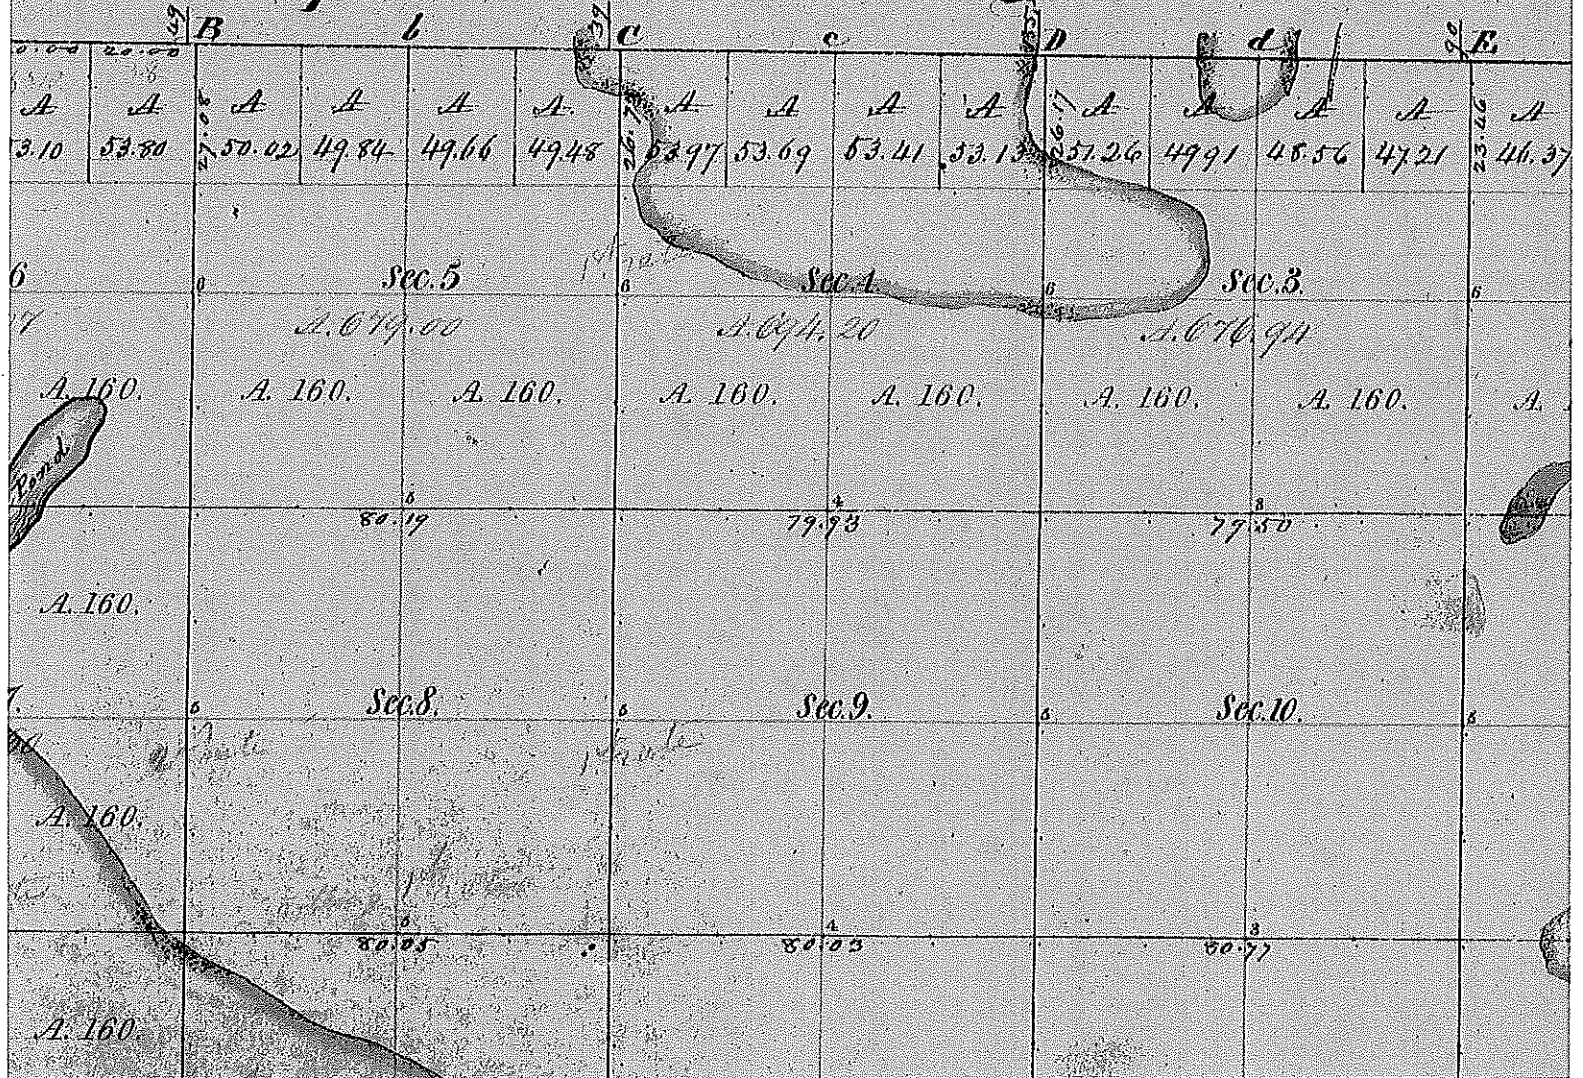 B b C c D d E
0.00 20.00
A A A A A A A A A A A A A A A
3.10 53.80 27.08 50.02 49.84 49.66 49.48 53.97 53.69 53.41 53.13 26.17 51.26 49.91 48.56 47.21 23.46 46.37
6 Sec. 5 Sec. 4 Sec. 3.
A. 679.00 A. 694.20 A. 676.94
A. 160. A. 160. A. 160. A. 160. A. 160. A. 160. A. 160. A.
Pond
80.19 79.93 79.50
A. 160.
7. Sec. 8. Sec. 9. Sec. 10.
A. 160.
80.05 80.03 80.77
A. 160.